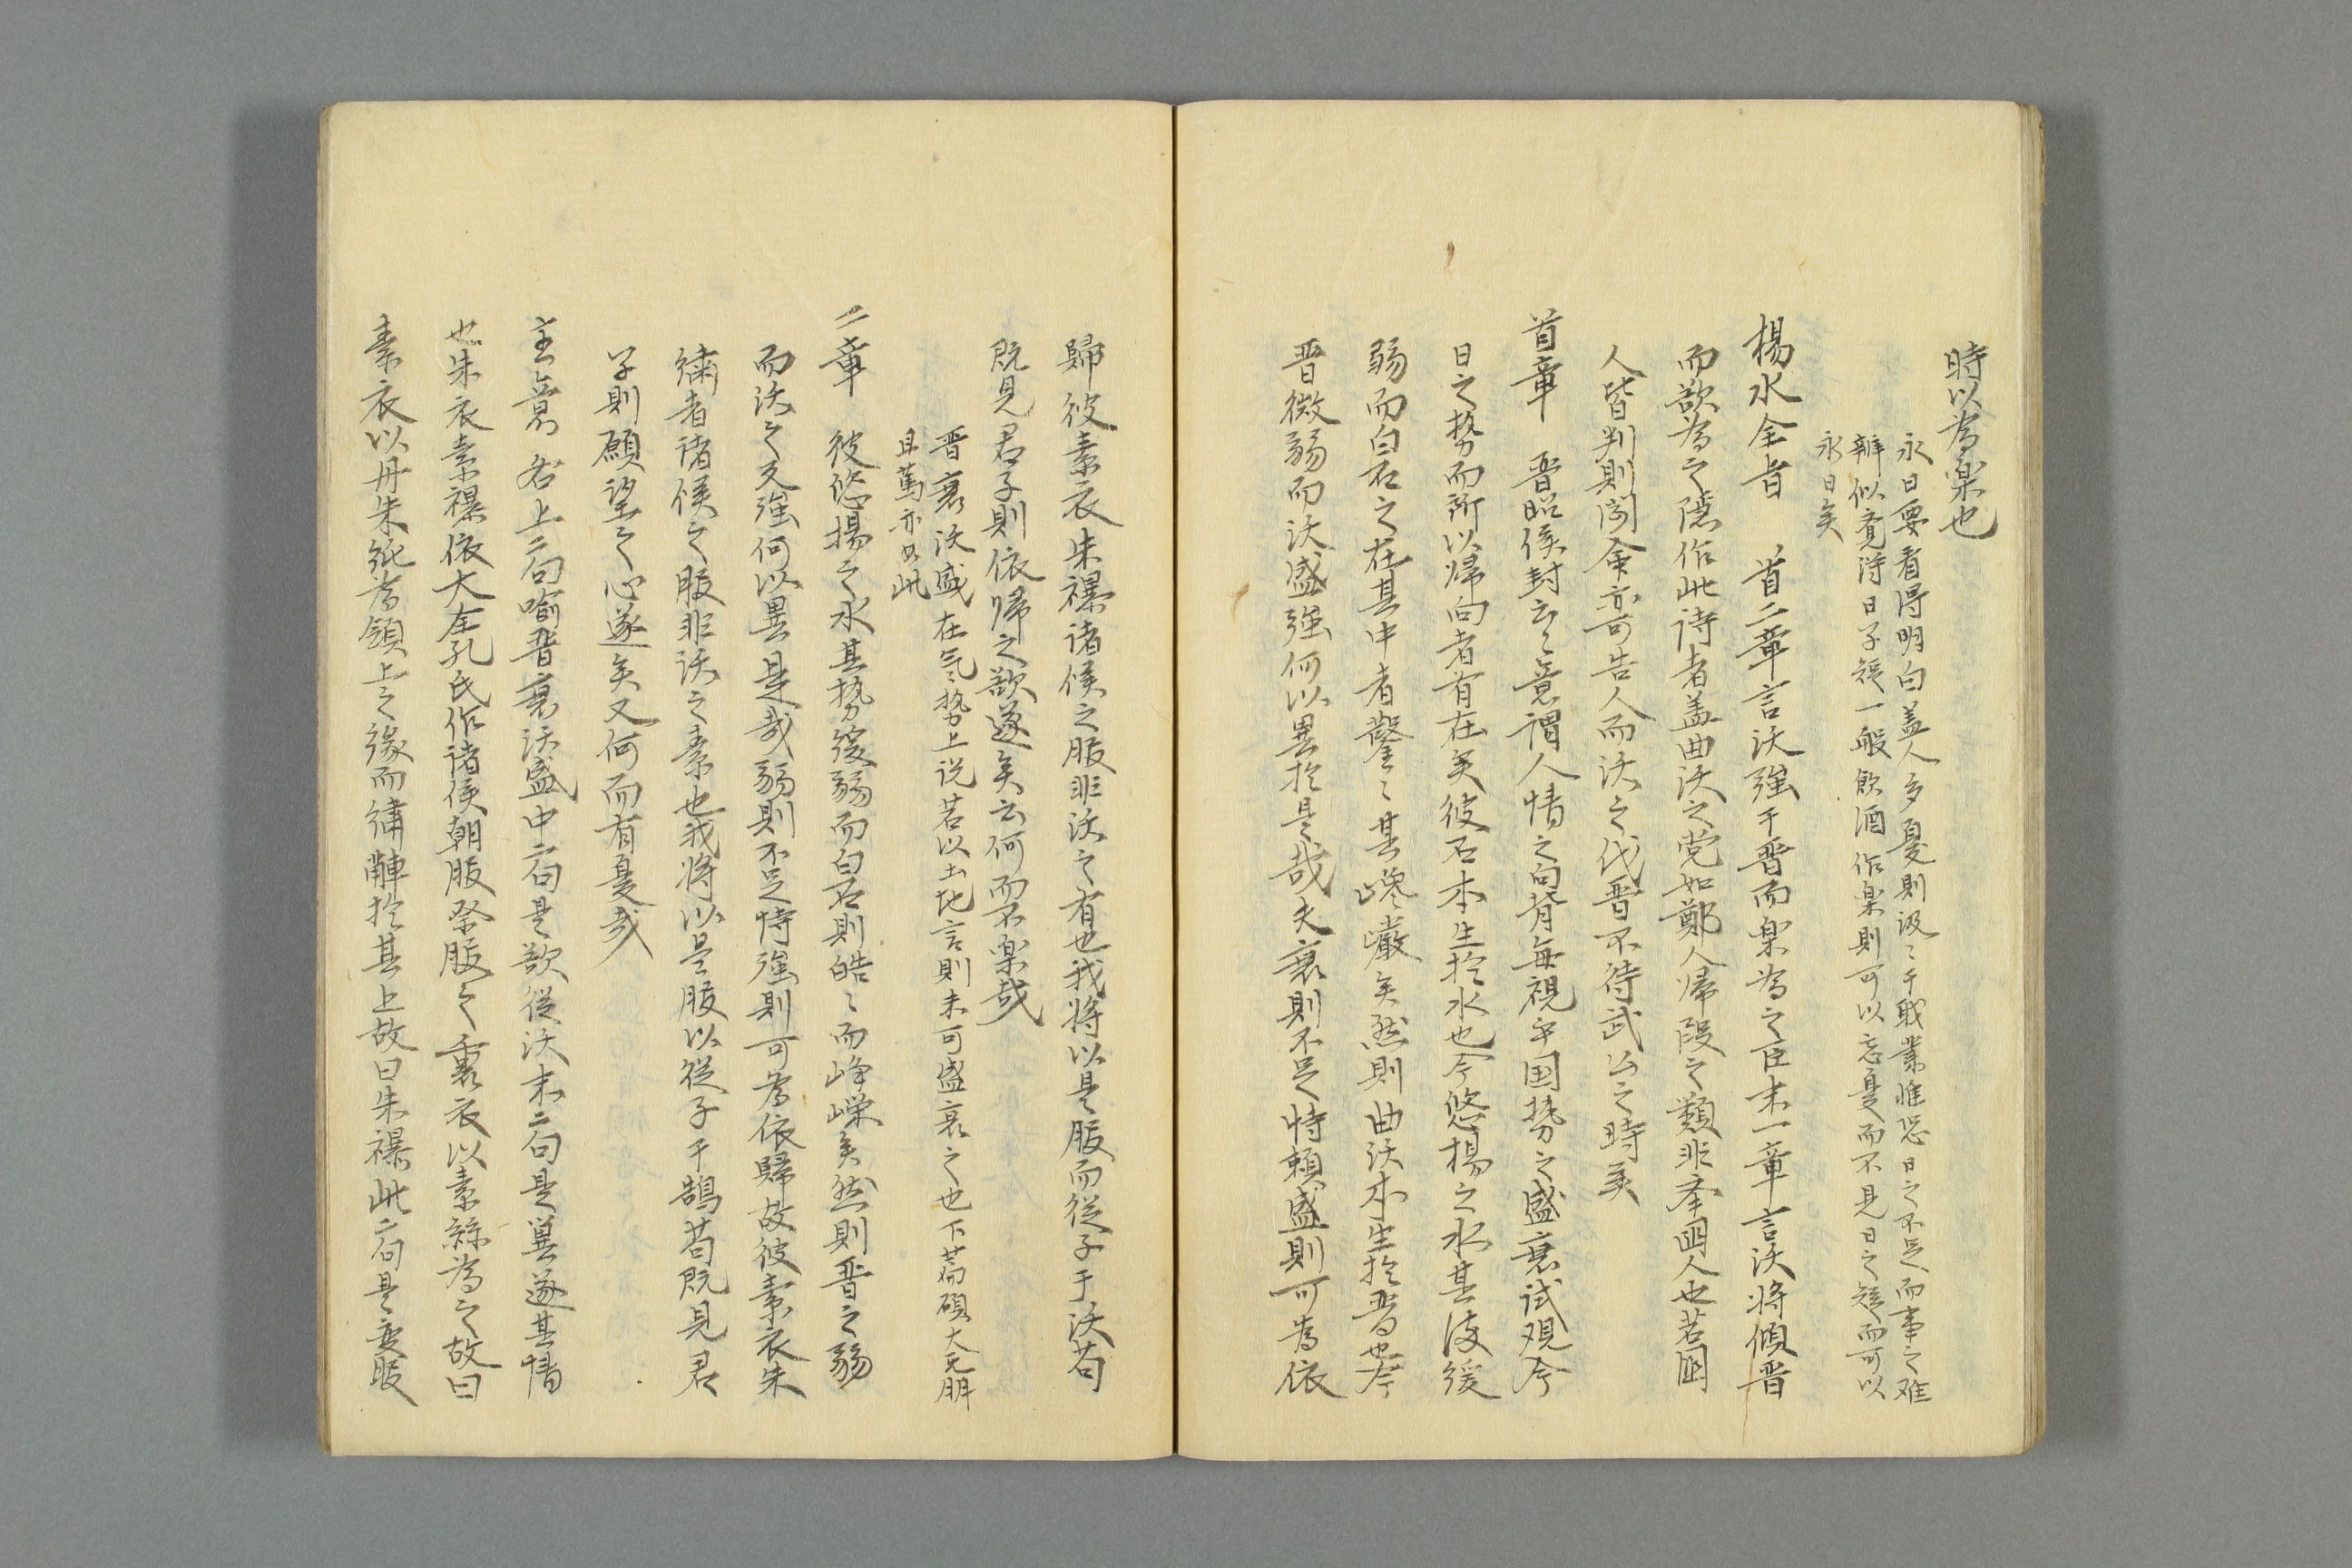 時以為楽也
永日要看得明白盖人多憂則汲〻于職業惟恐日之不足而事之难
辦似覚得日子短一般飲酒作楽則可以忘憂而不見日之短而可以
永日矣
楊水全旨　首二章言沃強于晋而楽為之臣末一章言沃将傾晋
而欲為之隠作此詩者盖曲沃之党如鄭人帰段之類非牽国人也若国
人皆判則闻命亦可告人而沃之伐晋不待武公之時矣
首章　晋昭侯封云〻意謂人情之向背每視乎国势之盛衰试观今
日之势而所以帰向者有在矣彼石本生於水也今悠揚之水其波緩
弱而白石之在其中者鑿〻其巉巌矣然則曲沃本生於晋也今
晋微弱而沃盛强何以異於是哉夫衰則不足恃頼盛則可為依
歸彼素衣朱襮诸侯之服非沃之有也我将以是服而從子于沃苟
既見君子則依帰之欲遂矣云何而不楽哉
晋衰沃盛在気势上说若以土地言則未可盛衰之也下篇碩大无朋
且篤亦如此
二章　彼悠揚之水其势緩弱而白石則皓〻而峥嵘矣然則晋之弱
而沃之又强何以異是哉弱則不足恃强則可為依歸故彼素衣朱
繡者诸侯之服非沃之素也我将以是服以從子于鵠苟既見君
子則願望之心遂矣又何而有憂哉
主意　各上二句喻晋衰沃盛中二句是欲從沃末二句是冀遂其情
也朱衣素襮依大全孔氏作诸侯朝服祭服之裏衣以素絲為之故曰
素衣以丹朱纯為領上之缘而繡黼於其上故曰朱襮此二句是变服